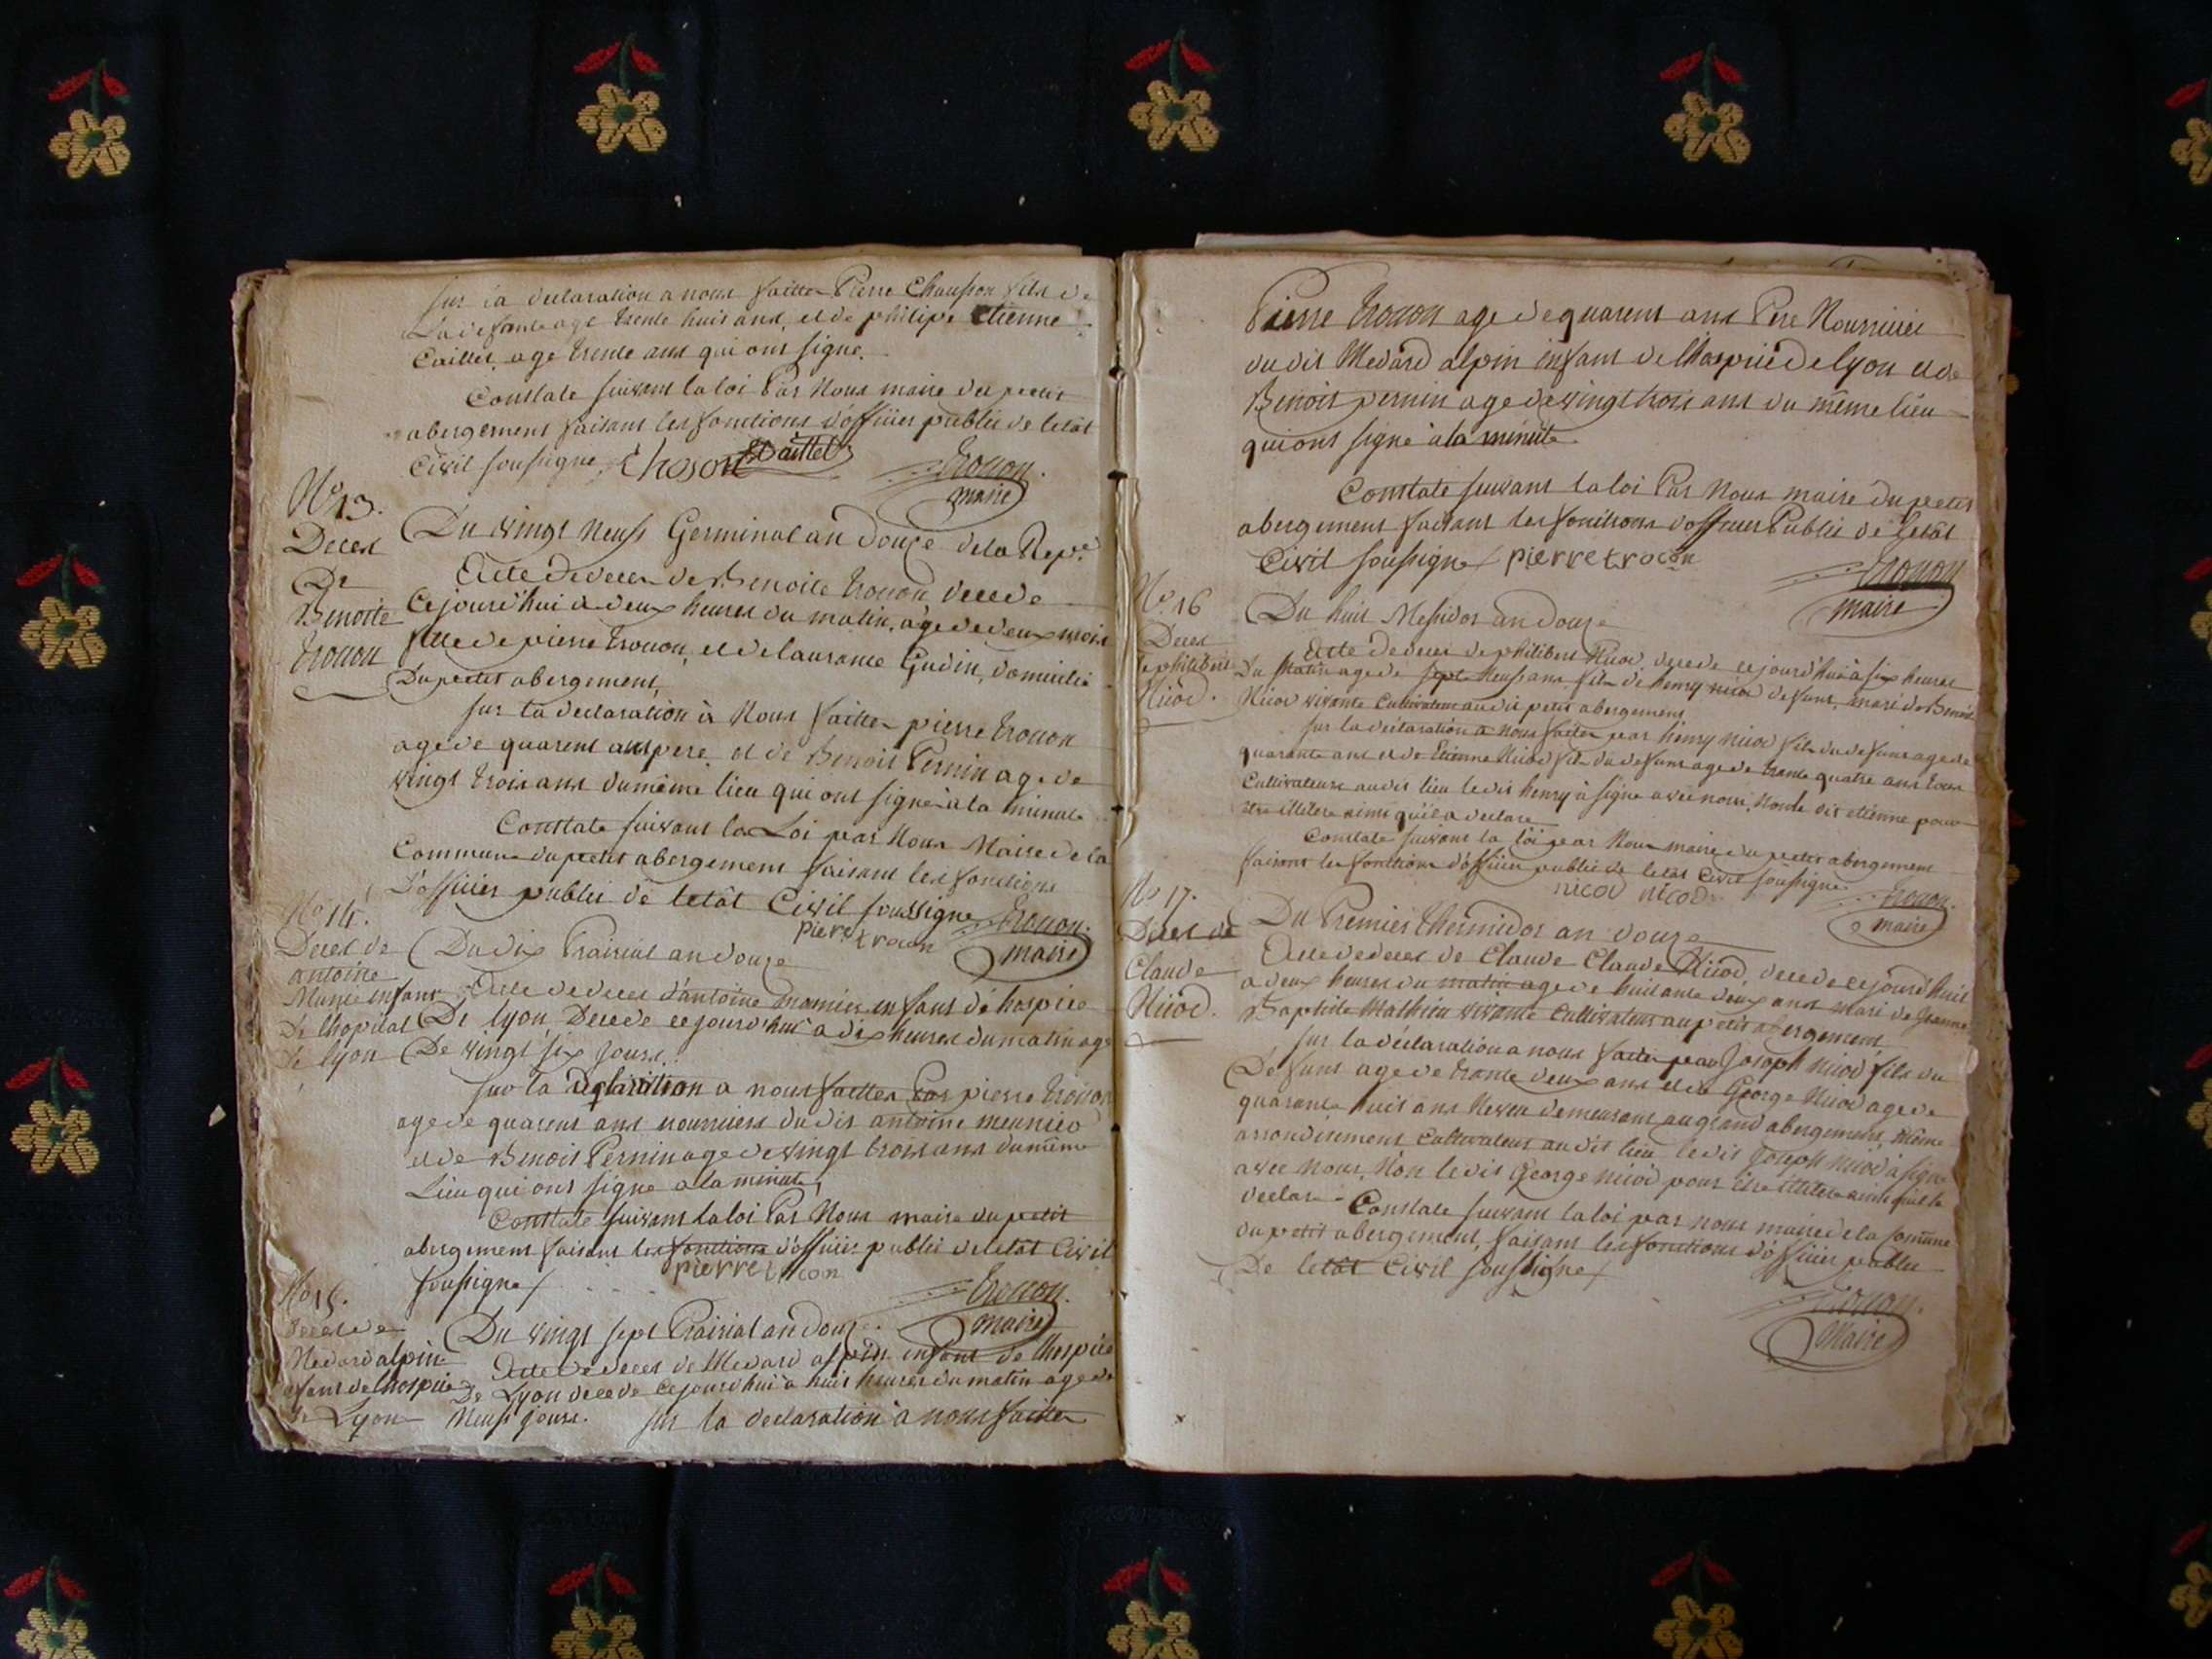 sur la declaration a nous faitte Pierre Chausson fils de
La defunte age trente huit ans, et de philipe Etienne
Caillet, age trente ans qui ont signe.
Constate suivant la loi Par Nous maire du petit
abergement faisant les fonctions d'offiiier publie de letât
Civil soussigne, Choson Caillet
Trocon
maire
N° 13.
Deces
De
Benoite
trocon
Du vingt Neuf Germinal an Douze de la Repe
Acte de deces de Benoite trocon decede
Cejourd'hui a deux heures du matin, âge de deux mois
fille de pierre trocon, et de laurance Gudin, domicilie
Du petit abergement,
sur la declaration à Nous faitte pierre trocon
age de quarent ans pere et de Benoit Pernin age de
vingt trois ans du même lieu qui ont signe à la minute
Constate suivant la Loi par Nous Maire de la
Commune du petit abergement faisant les fonctions
D'offiiier publie de letât Civil soussigne
pierre trocon
Trocon.
maire
N° 14.
Deces de
antoine
enfant
De lhopital
de lyon
Du dix Prairial an douze
Acte de deces d'antoine enfant de hospice
De lyon, Decede cejourd'hui a dix heures du matin age
De vingt six jours.
sur la Declaration a nous faitte Par pierre trocon
age de quarent ans nourricier du dit antoine meunier
et de Benoit Pernin age de vingt trois ans du même
Lieu qui ont signe a la minute,
Constate suivant la loi Par Nous maire du petit
abergement faisant les fonctions d'offiiier publie de letât Civil
soussigne
pierre trocon
Trocon.
maire
N° 15.
Deces de
Medard alpin
enfant de lhospice
de Lyon
Du vingt sept Prairial an douze.
Acte de deces de Medard alpin enfant de lhospice
De Lyon decede cejourd'hui a huit heures du matin age de
Neuf jours. sur la declaration à nous faitte
Pierre trocon age de quarent ans Pere Nourricier
du dit Medard alpin enfant de lhospice de lyon et de
Benoit pernin age de vingt trois ans du même lieu
qui ont signe à la minute
Constate suivant la loi Par Nous maire du petit
abergement faisant les fonctions doffiiier Publie de letât
Civil soussigne pierre trocon
Trocon
maire
N° 16
Deces
de philibert
Nicod.
Du huit Messidor an douze
Acte de deces de philibert Nicod, decede cejourd'hui à six heures
du matin age de sept Neuf ans fils de henry nicod defunt, mari de Benoite
Nicod vivante Cultivateur au dit petit abergement
sur la déclaration a nous faitte par henry nicod fils du defunt age de
quarante ans et de Etienne Nicod fils du defunt age de trante quatre ans tous
Cultivateurs au dit lieu le dit henry à signe avec nous, Non le dit etienne pour
etre illetere ainsi qu'il a declare
Constate suivant la loi par Nous maire du petit abergement
faisant les fonctions d'offiiier publie de letât Civil soussigne
nicod nicod
Trocon.
maire
N° 17.
Deces de
Claude
Nicod.
Du Premier thermidor an douze
Acte de deces de Claude Claude Nicod decede cejourd'huit
a deux heures du matin age de huitante deux ans mari de Jeanne
Baptiste Mathieu vivante Cultivateur au petit abergement
sur la déclaration a nous faitte par Joseph nicod fils du
Defunt age de trante deux ans et de George Nicod age de
quarante huit ans Neveu demeurant au grand abergement, même
arrondisement Cultivateur au dit lieu le dit Joseph Nicod à signe
avec nous, Non le dit George nicod pour être illetere ainsi quil la
declare. Constate suivant la loi par nous maire de la Commune
du petit abergement, faisant les fonctions d'offiiier publie
De letât Civil soussigne
Trocon.
Maire